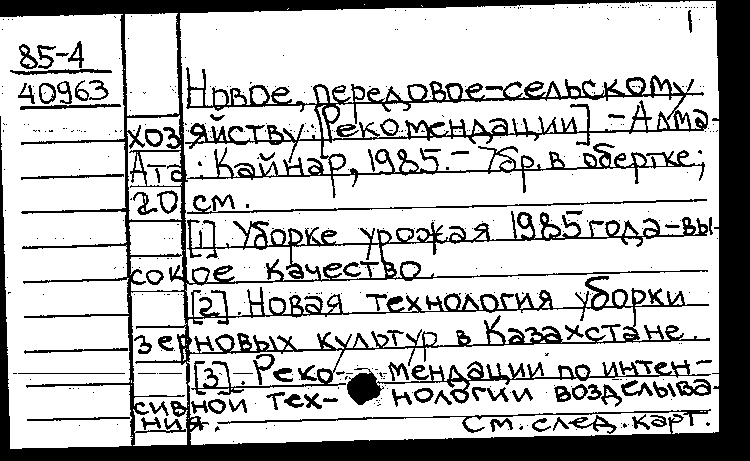 1
85-4
40963
Новое, передовое-сельскому
хозяйству: [Рекомендации] -Алма-
Ата: Кайнар, 1985.- 7бр. в обертке;
20 см.
[1]. Уборке урожая 1985 года-вы-
сокое качество.
[2]. Новая технология уборки
зерновых культур в Казахстане.
[3]. Реко- мендации по интен-
сивной тех- нологии возделыва-
ния. См. след. карт.